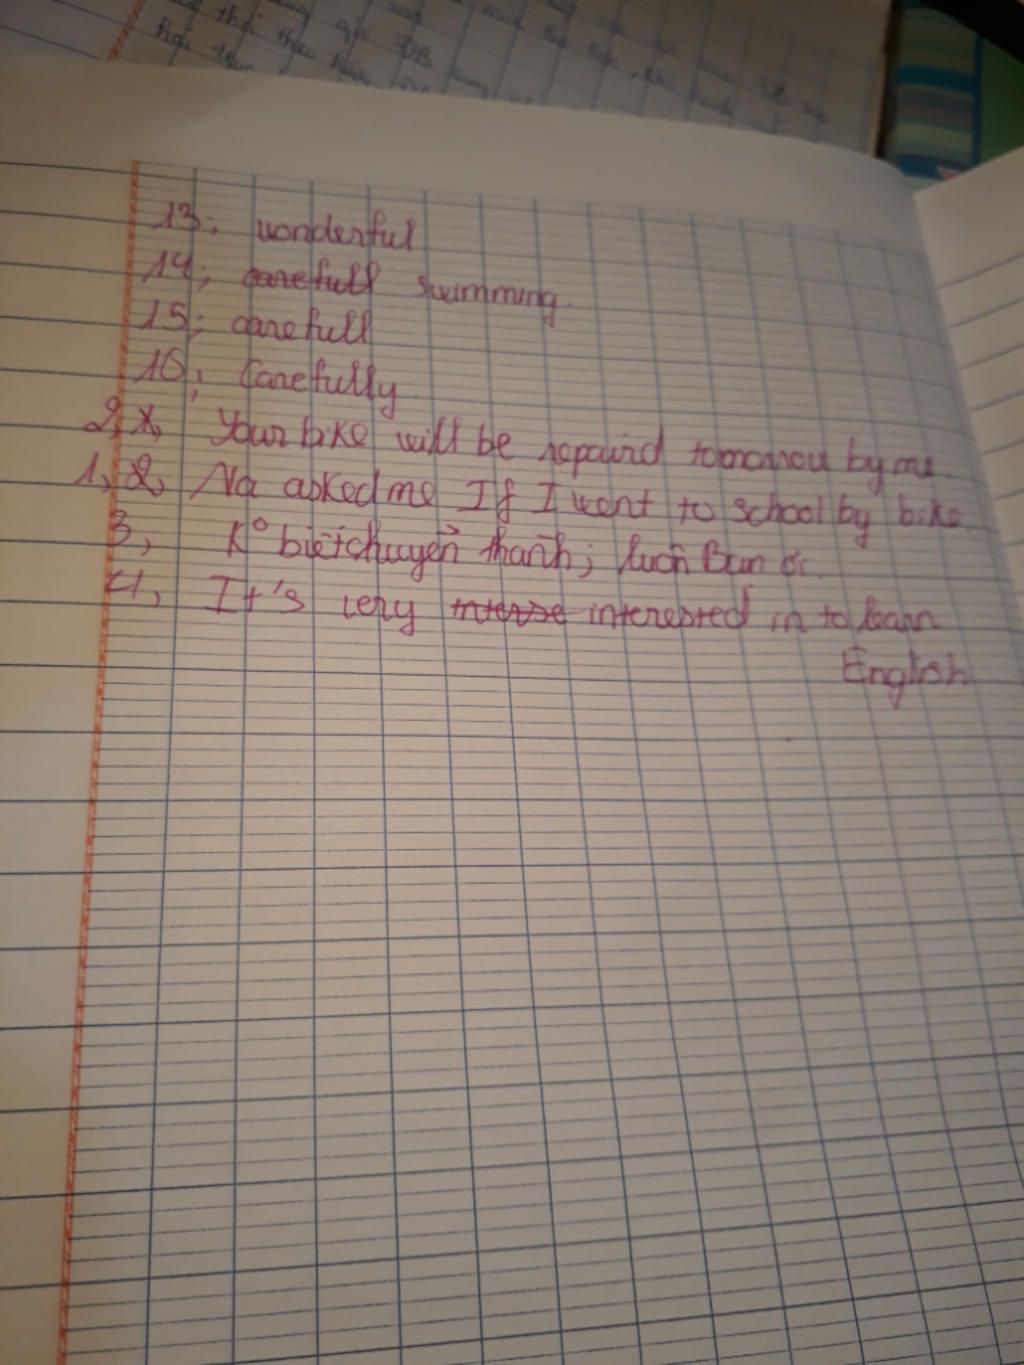 13; wonderful
14; carefull swimming.
15; carefull
16, Carefully
2, x, Your bike will be repairid tomorrow by me
1, 2, Na asked me If I went to school by bike
3, K° biết chuyển thành; luôn Bạn ơi.
4, It's very interse interested in to learn
English